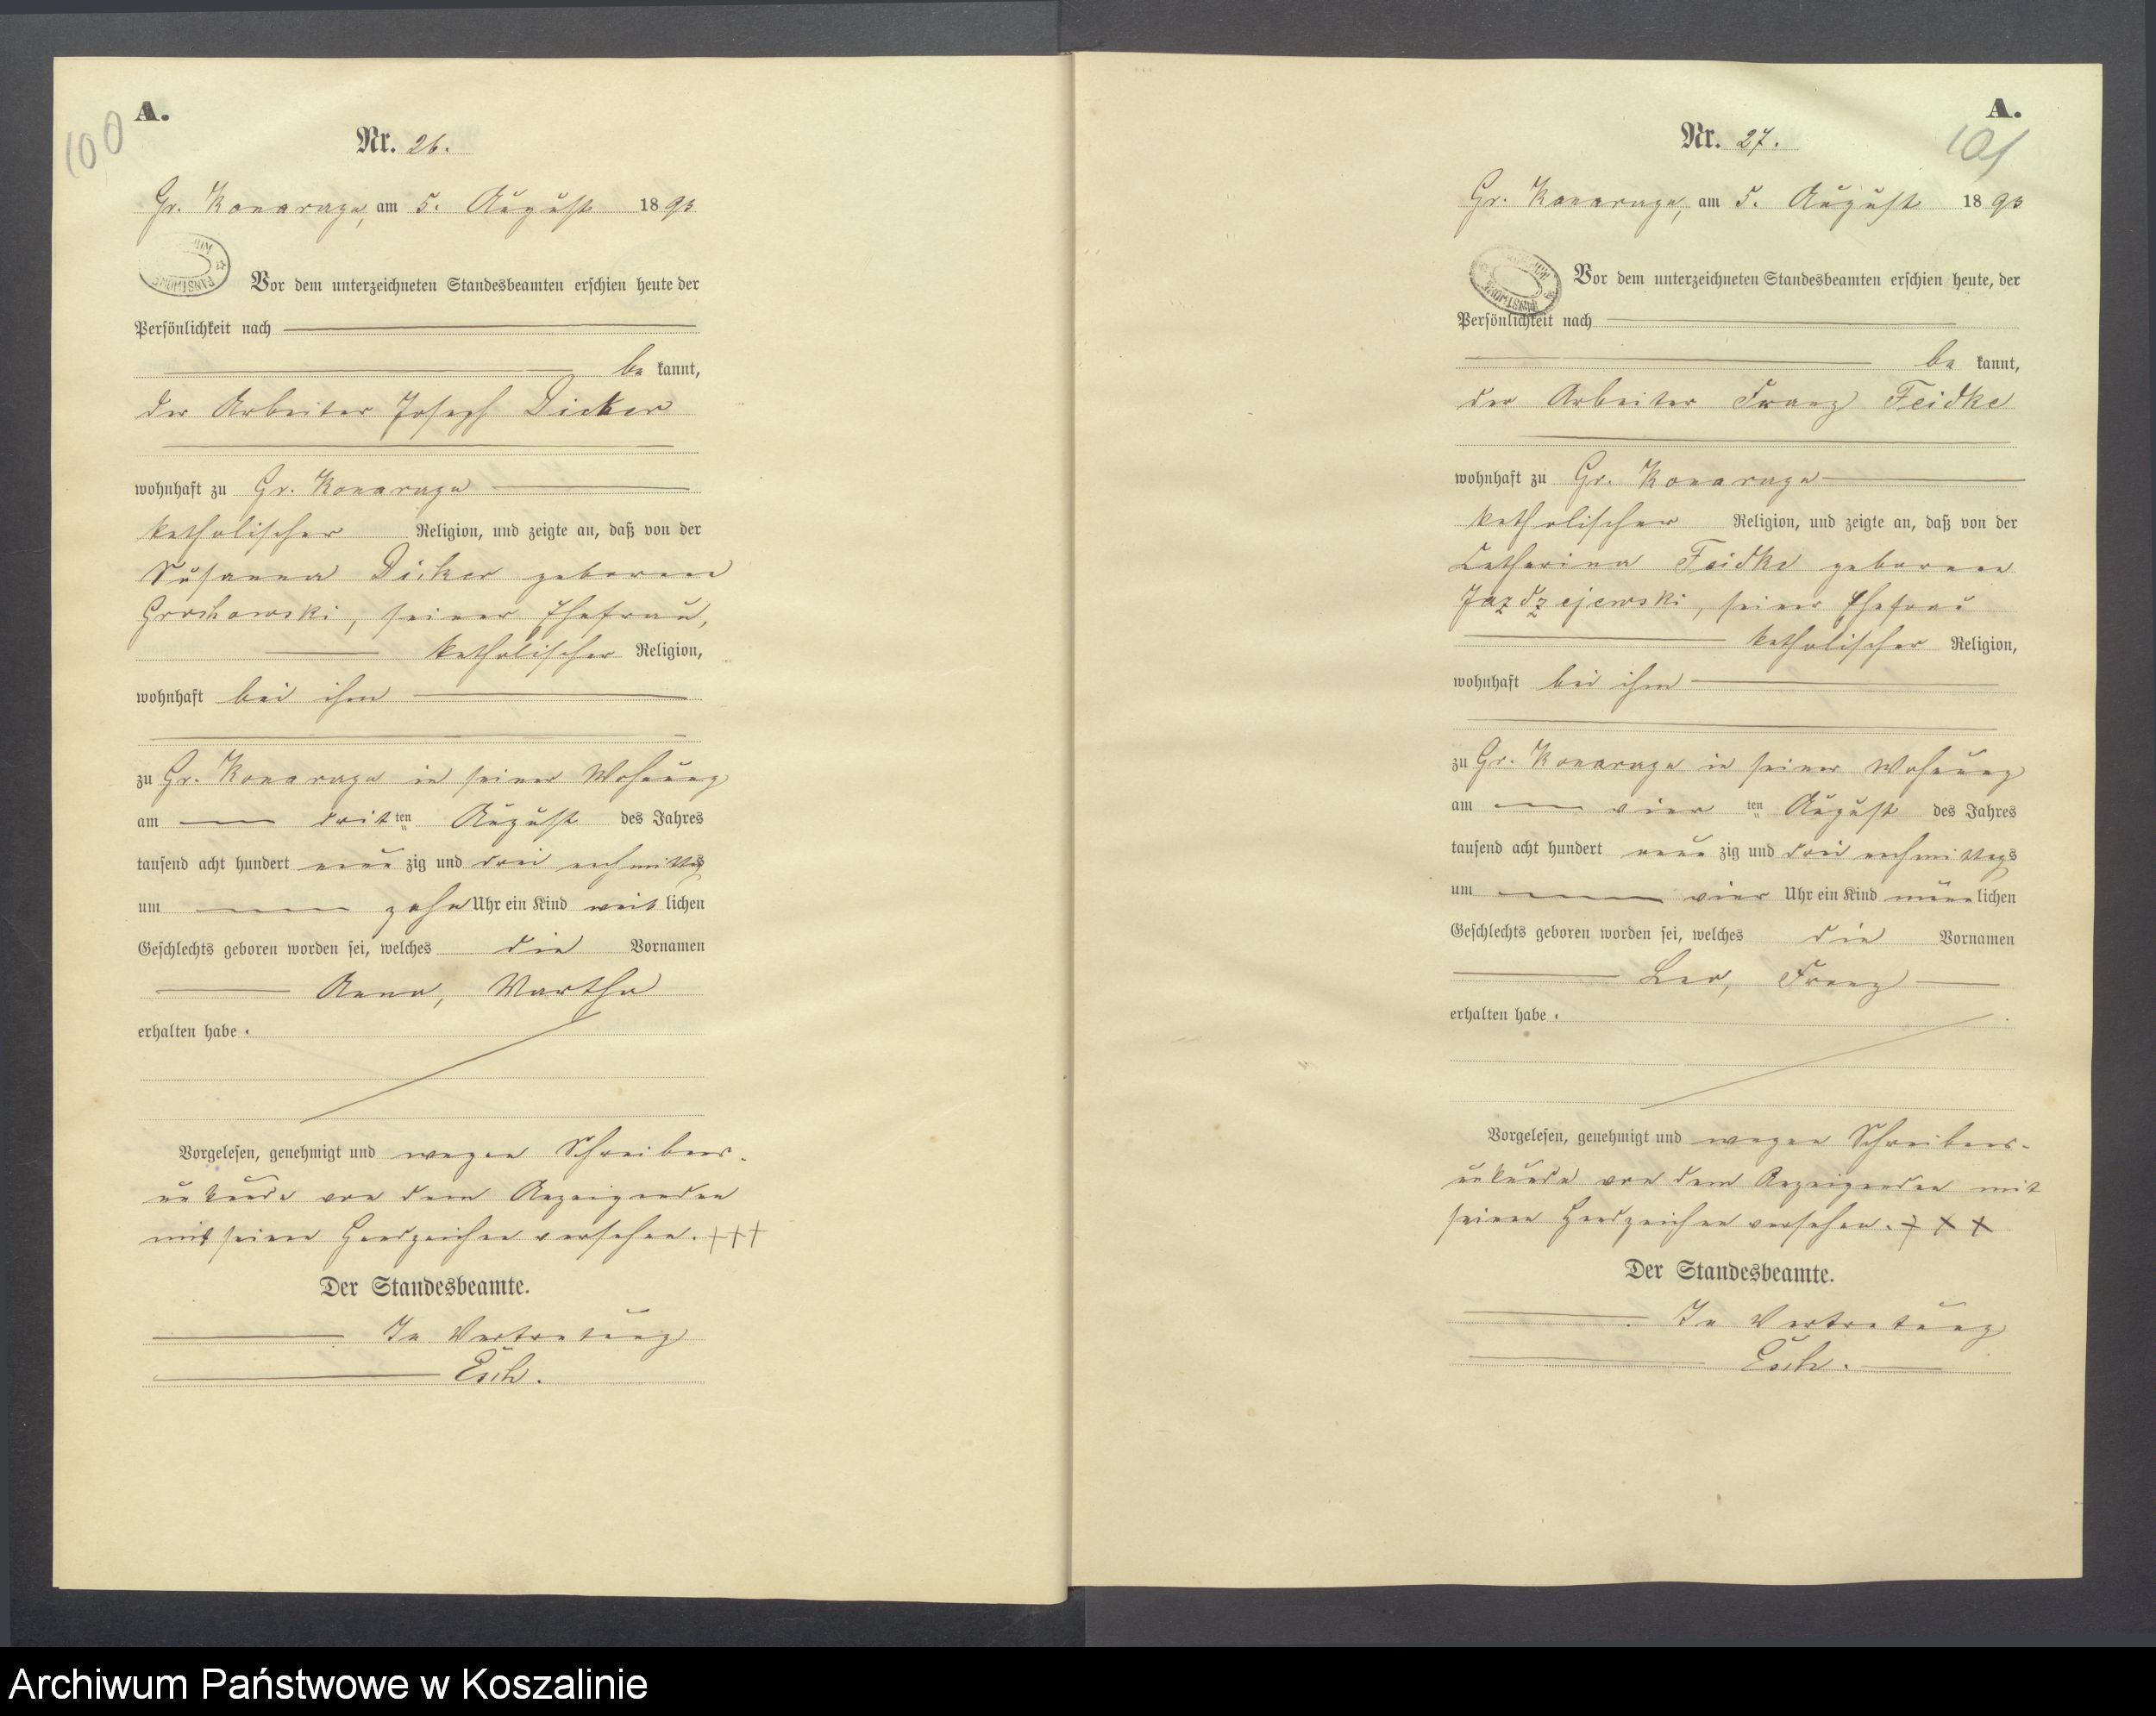 A.
100
Nr. 26.
Gr. Konarzyn, am 5. August 1893
Vor dem unterzeichneten Standesbeamten erschien heute der
Persönlichkeit nach
be kannt,
der Arbeiter Joseph Dicker
wohnhaft zu Gr. Konarzyn
katholischer Religion, und zeigte an, daß von der
Susanna Dicker geborene
Grochowski, seiner Ehefrau,
katholischer Religion,
wohnhaft bei ihm
zu Gr. Konarzyn in seiner Wohnung
am drit ten August des Jahres
tausend acht hundert neun zig und drei nachmittags
um zehn Uhr ein Kind weib lichen
Geschlechts geboren worden sei, welches die Vornamen
Anna, Martha
erhalten habe.
Vorgelesen, genehmigt und wegen Schreibens-
unkunde von dem Anzeigenden
mit seinen Handzeichen versehen. +++
Der Standesbeamte.
In Vertretung
Esch.
A.
101
Nr. 27.
Gr. Konarzyn, am 5. August 1893
Vor dem unterzeichneten Standesbeamten erschien heute, der
Persönlichkeit nach
be kannt,
der Arbeiter Franz Feidke
wohnhaft zu Gr. Konarzyn
katholischer Religion, und zeigte an, daß von der
Catharina Feidke geborene
Jazdzejewski, seiner Ehefrau
katholischer Religion,
wohnhaft bei ihm
zu Gr. Konarzyn in seiner Wohnung
am vier ten August des Jahres
tausend acht hundert neun zig und drei nachmittags
um vier Uhr ein Kind männ lichen
Geschlechts geboren worden sei, welches die Vornamen
Leo, Franz
erhalten habe.
Vorgelesen, genehmigt und wegen Schreibens-
unkunde von dem Anzeigenden mit
seinen Handzeichen versehen. + + +
Der Standesbeamte.
In Vertretung
Esch.
Archiwum Państwowe w Koszalinie